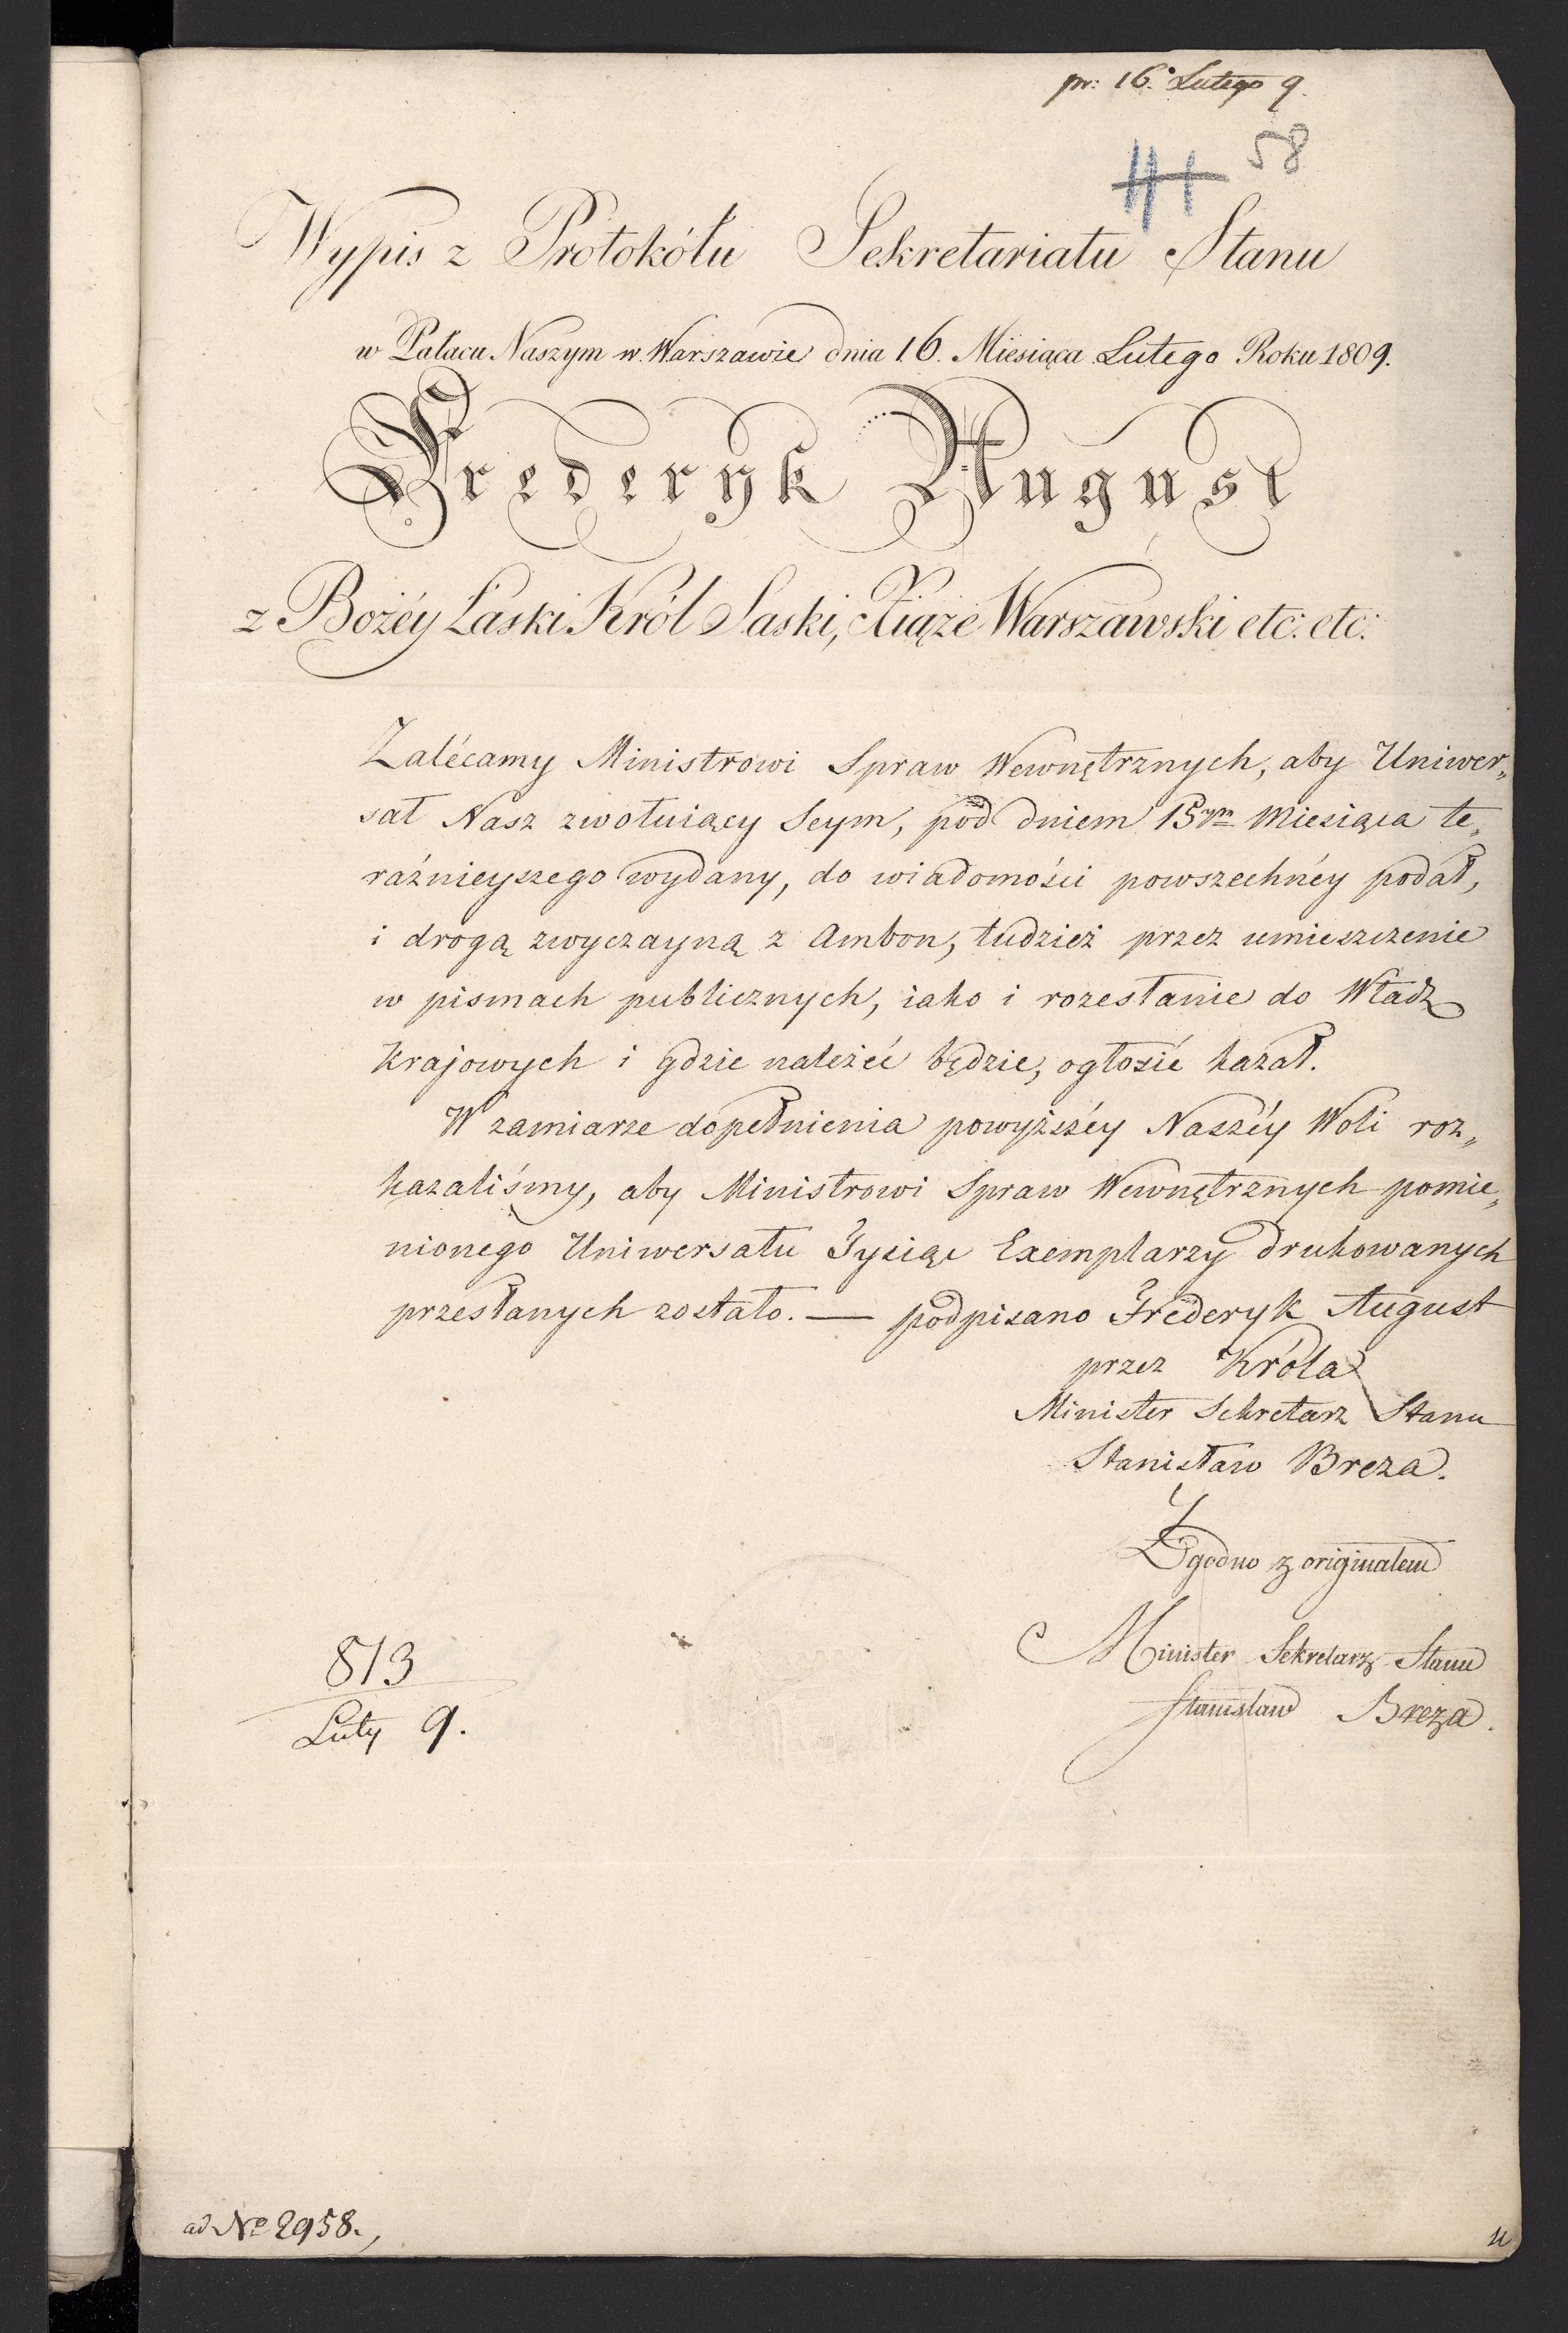 pr: 16. Lutego 9.
58
Wypis z Protokółu Sekretariatu Stanu
w Pałacu Naszym w Warszawie dnia 16. Miesiąca Lutego Roku 1809.
Frederyk August
z Bożéy Łaski Król Saski, Xiąże Warszawski etc: etc:
Zalécamy Ministrowi Spraw Wewnętrznych, aby Uniwer„
sał Nasz zwołuiący Seym, pod dniem 15ym Miesiąca te„
raźnieyszego wydany, do wiadomości powszechnéy podał,
i drogą zwyczayną z Ambon, tudzież przez umieszczenie
w pismach publicznych, iako i rozesłanie do Władz
Krajowych i gdzie należéć będzie, ogłosić kazał.
W zamiarze dopełnienia powyższéy Naszéy Woli roz„
kazaliśmy, aby Ministrowi Spraw Wewnętrznych pomie„
nionego Uniwersału Tysiąc Exemplarzy drukowanych
przesłanych zostało. — podpisano Frederyk August
przez Króla
Minister Sekretarz Stanu
Stanisław Breza.
Zgodno z originałem
Minister Sekretarz Stanu
Stanisław Breza.
813
Luty 9.
ad No 2958.